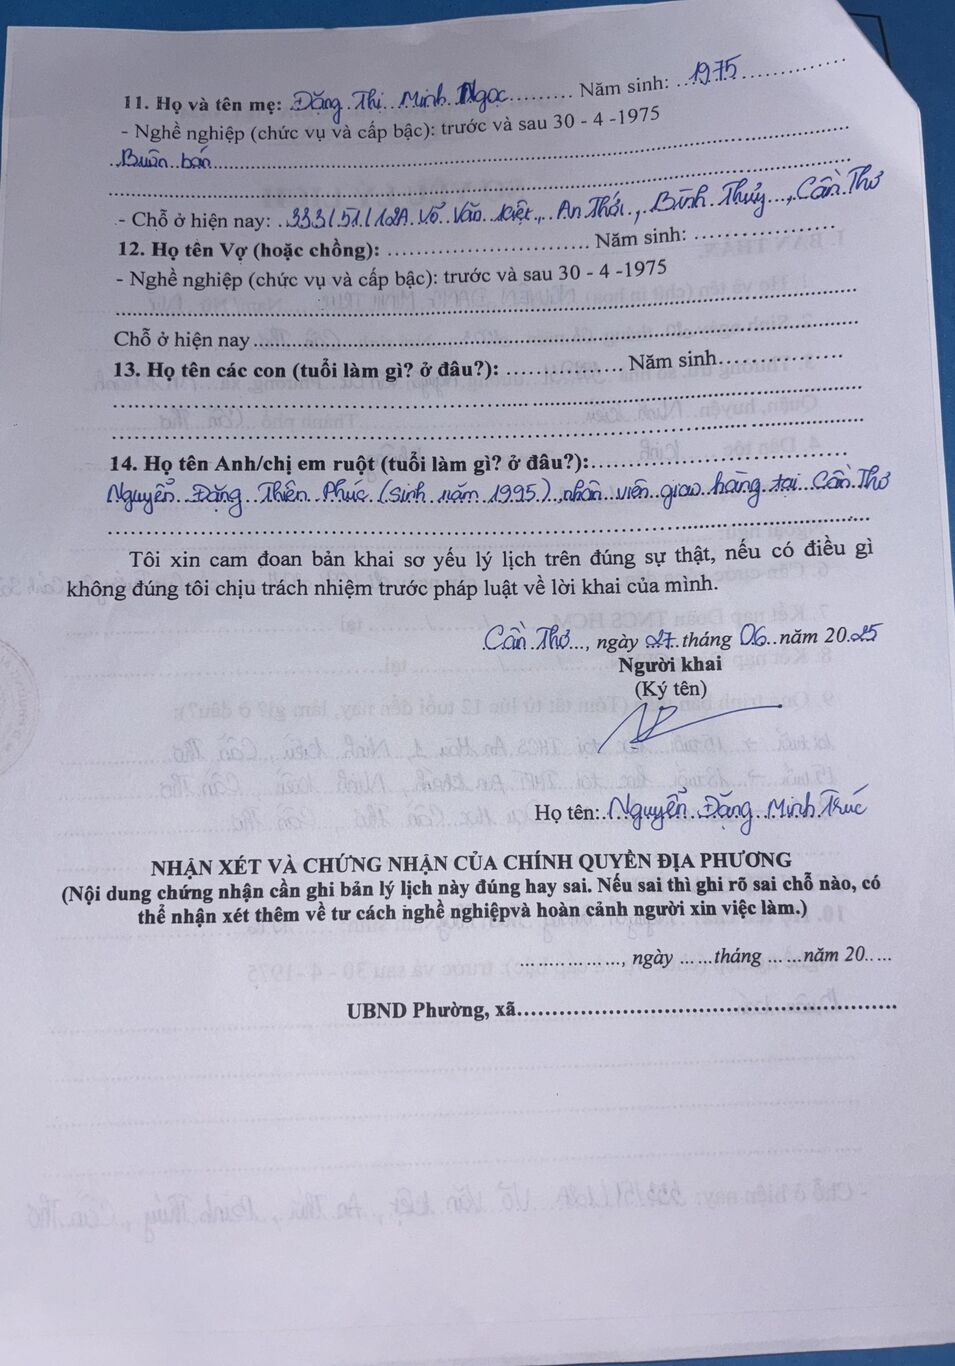 11. Họ và tên mẹ: Đặng Thị Minh Ngọc Năm sinh: 1975
- Nghề nghiệp (chức vụ và cấp bậc): trước và sau 30 - 4 -1975
Buôn bán
- Chỗ ở hiện nay: 333/51/12A Võ Văn Kiệt, An Thới, Bình Thủy, Cần Thơ
12. Họ tên Vợ (hoặc chồng): Năm sinh:
- Nghề nghiệp (chức vụ và cấp bậc): trước và sau 30 - 4 -1975
Chỗ ở hiện nay
13. Họ tên các con (tuổi làm gì? ở đâu?): Năm sinh
14. Họ tên Anh/chị em ruột (tuổi làm gì? ở đâu?):
Nguyễn Đặng Thiên Phúc (sinh năm 1995), nhân viên giao hàng tại Cần Thơ
Tôi xin cam đoan bản khai sơ yếu lý lịch trên đúng sự thật, nếu có điều gì
không đúng tôi chịu trách nhiệm trước pháp luật về lời khai của mình.
Cần Thơ, ngày 27 tháng 06 năm 2025
Người khai
(Ký tên)
Họ tên: Nguyễn Đặng Minh Trúc
NHẬN XÉT VÀ CHỨNG NHẬN CỦA CHÍNH QUYỀN ĐỊA PHƯƠNG
(Nội dung chứng nhận cần ghi bản lý lịch này đúng hay sai. Nếu sai thì ghi rõ sai chỗ nào, có
thể nhận xét thêm về tư cách nghề nghiệpvà hoàn cảnh người xin việc làm.)
, ngày tháng năm 20
UBND Phường, xã